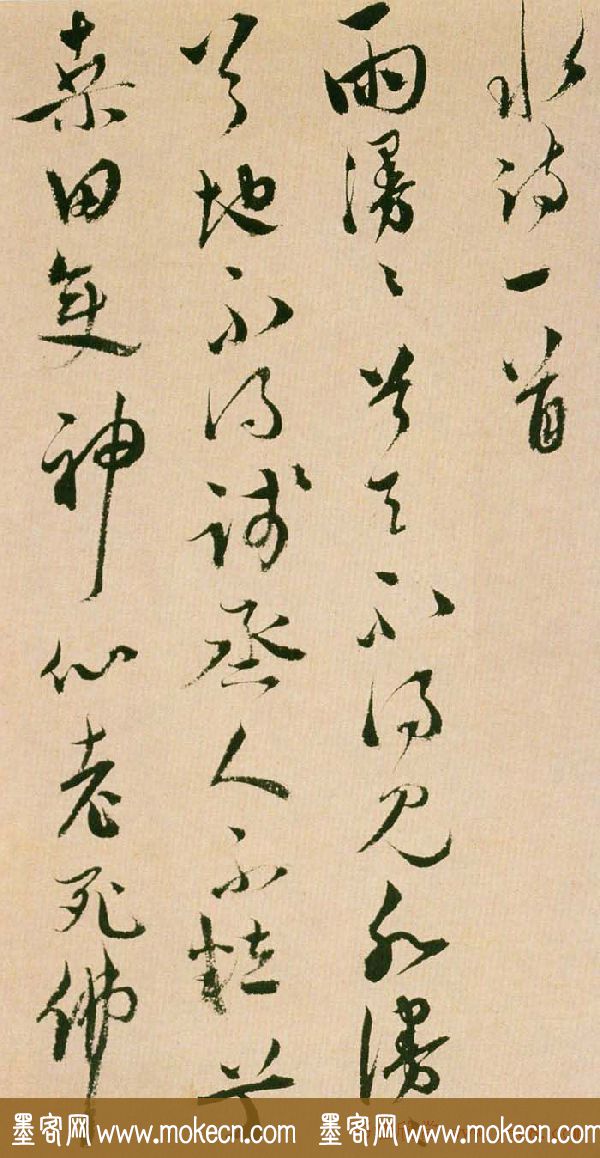 水詩一首
雨漫々兮天不得見水漫
兮地不得踐烝人不粒兮
桑田變神仙老死佛
墨客网 www.mokecn.com 墨客网 www.mokecn.com